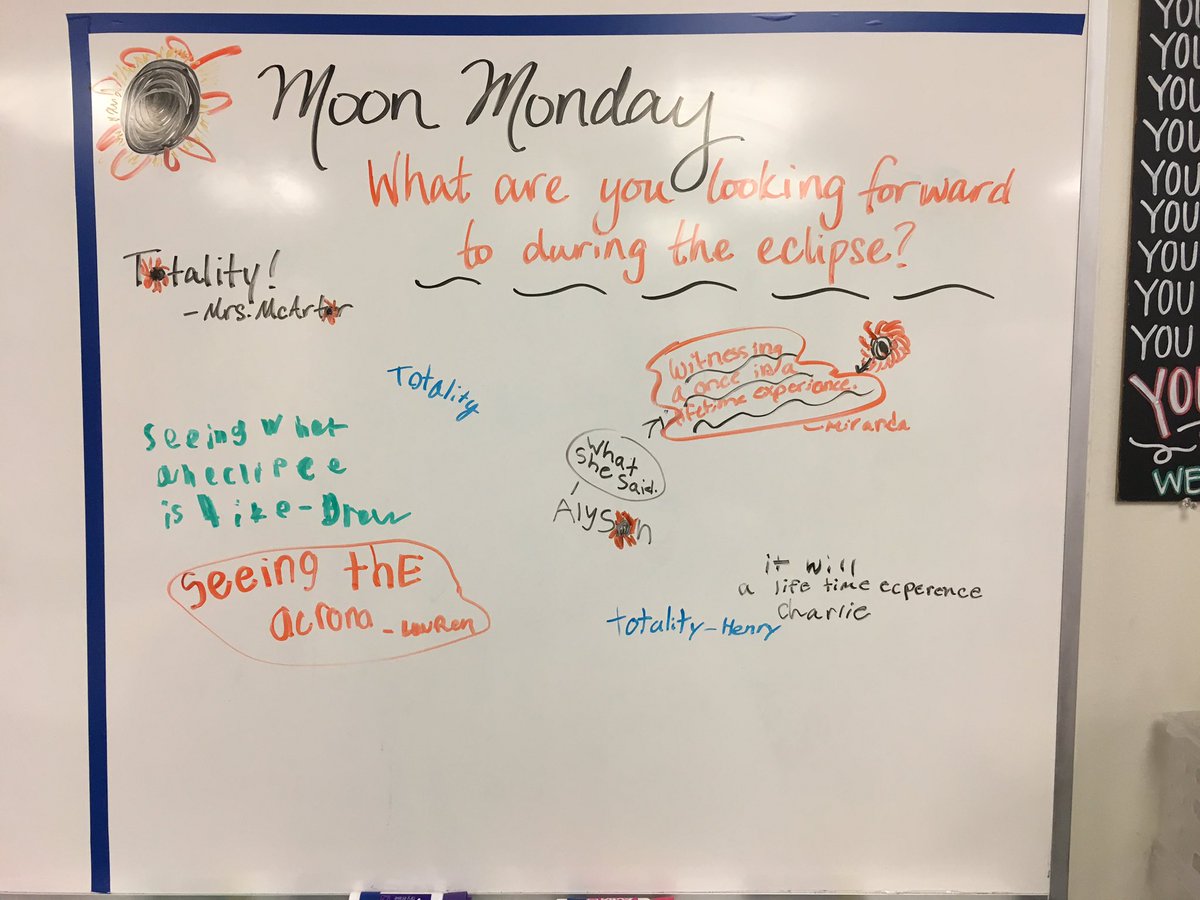 Moon Monday
What are you looking forward
to during the eclipse?
Totality!
- Mrs. McArtor
Totality
witnessing
a once in a
lifetime experience.
- Miranda
What
she said.
Alyson
seeing what
an eclipce
is like - Drew
seeing thE
acrona - LauRen
it will
a life time ecperence
Charlie
totality - Henry
YOU
YOU
YOU
YOU
YOU
YOU
YOU
YOU
YOU
YOU
WE